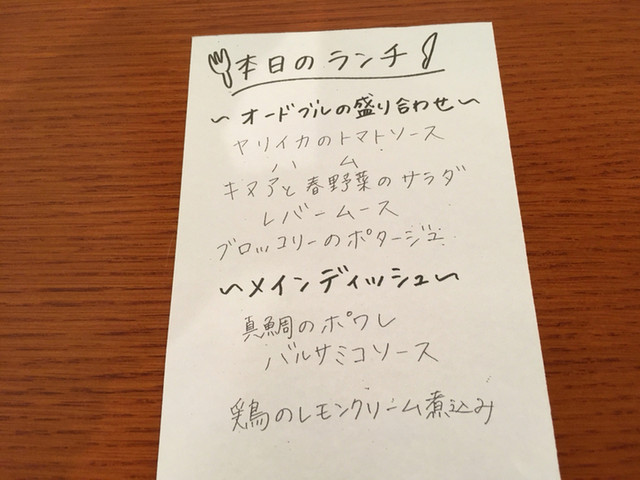 本日のランチ
~オードブルの盛り合わせ~
ヤリイカのトマトソース
ハム
キヌアと春野菜のサラダ
レバームース
ブロッコリーのポタージュ
~メインディッシュ~
真鯛のポワレ
バルサミコソース
鶏のレモンクリーム煮込み